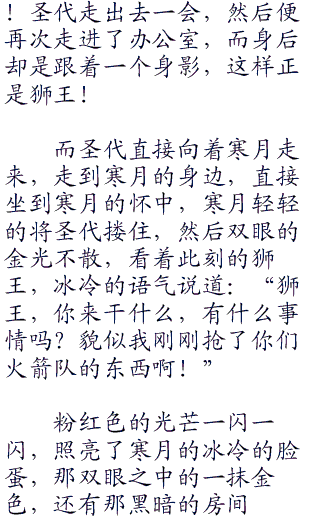 ！圣代走出去一会，然后便
再次走进了办公室，而身后
却是跟着一个身影，这样正
是狮王！
而圣代直接向着寒月走
来，走到寒月的身边，直接
坐到寒月的怀中，寒月轻轻
的将圣代搂住，然后双眼的
金光不散，看着此刻的狮
王，冰冷的语气说道：“狮
王，你来干什么，有什么事
情吗？貌似我刚刚抢了你们
火箭队的东西啊！”
粉红色的光芒一闪一
闪，照亮了寒月的冰冷的脸
蛋，那双眼之中的一抹金
色，还有那黑暗的房间